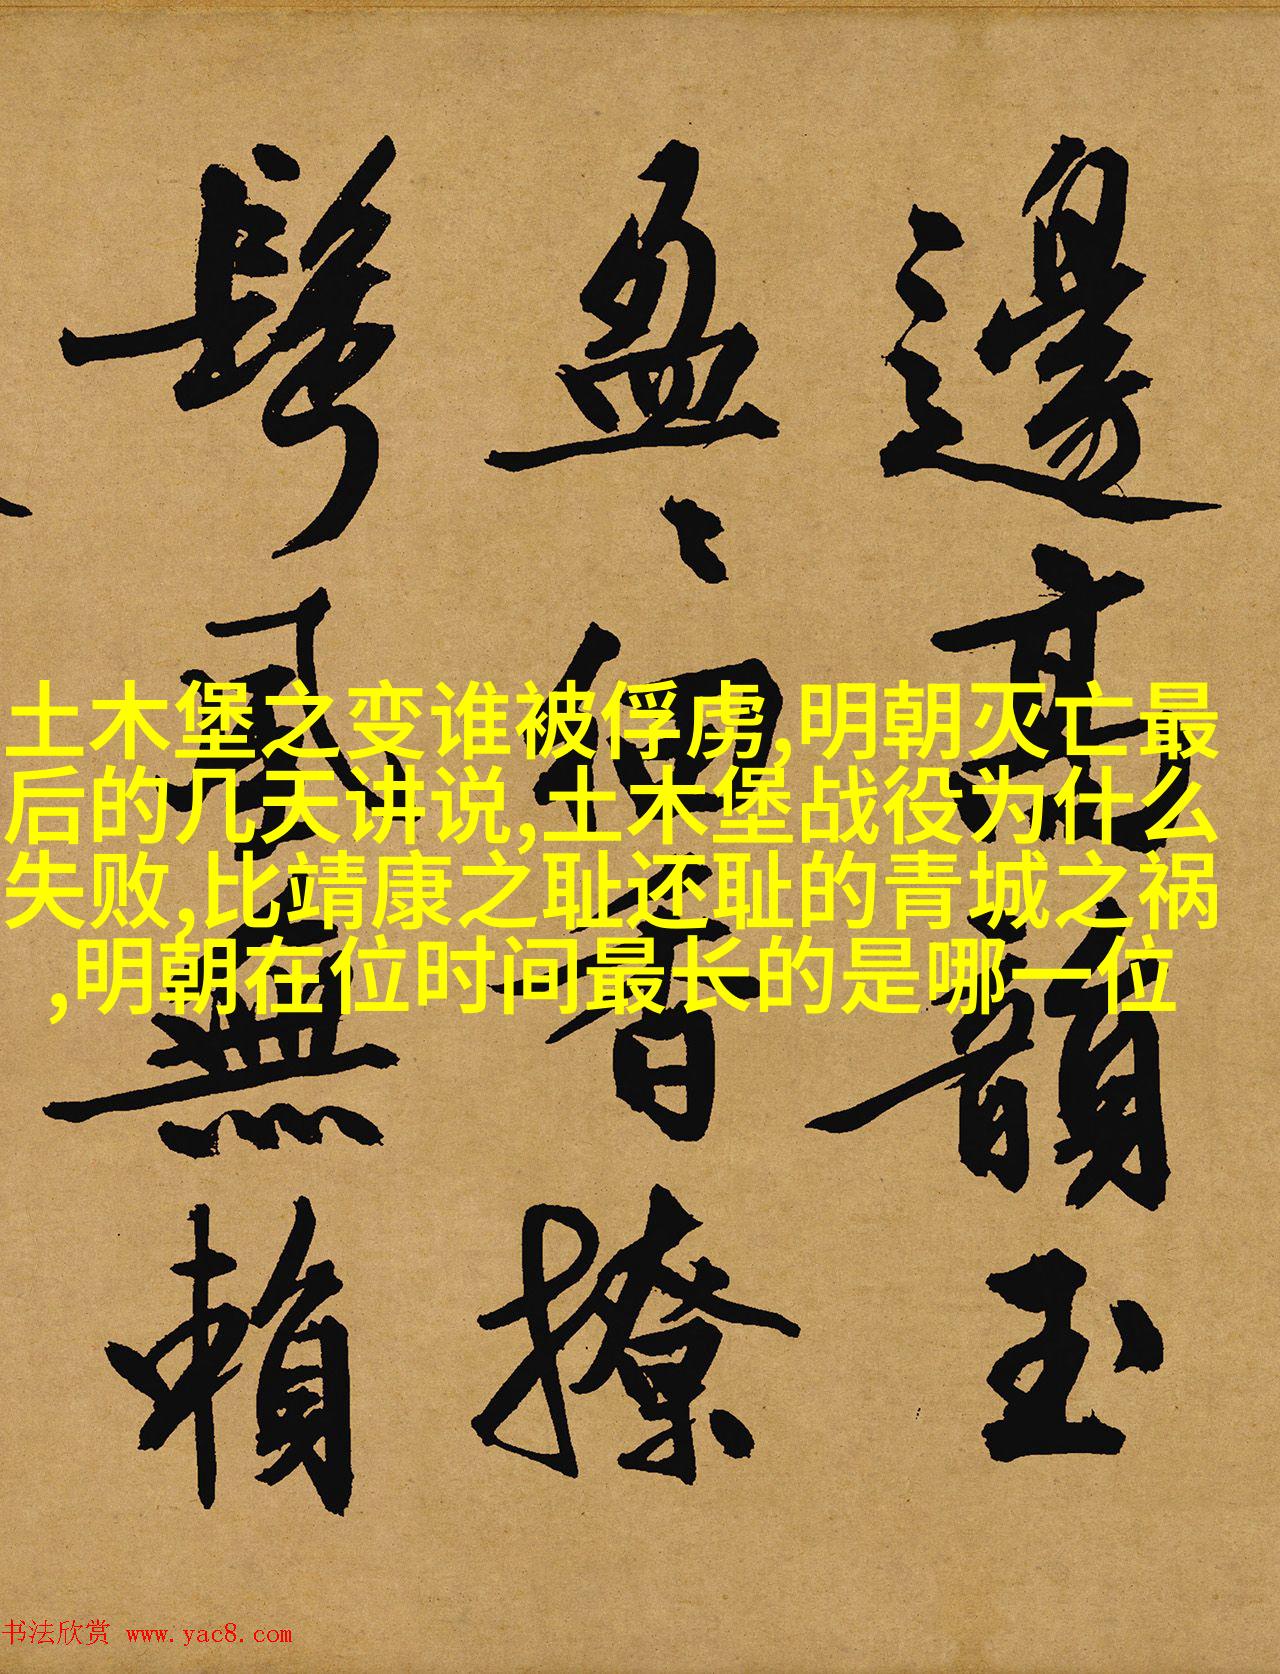 邊高韻玉
盈〻細香撩
鬓風無賴
土木堡之变谁被俘虏,明朝灭亡最
后的几天讲说,土木堡战役为什么
失败,比靖康之耻还耻的青城之祸
,明朝在位时间最长的是哪一位
书法欣赏 www.yac8.com